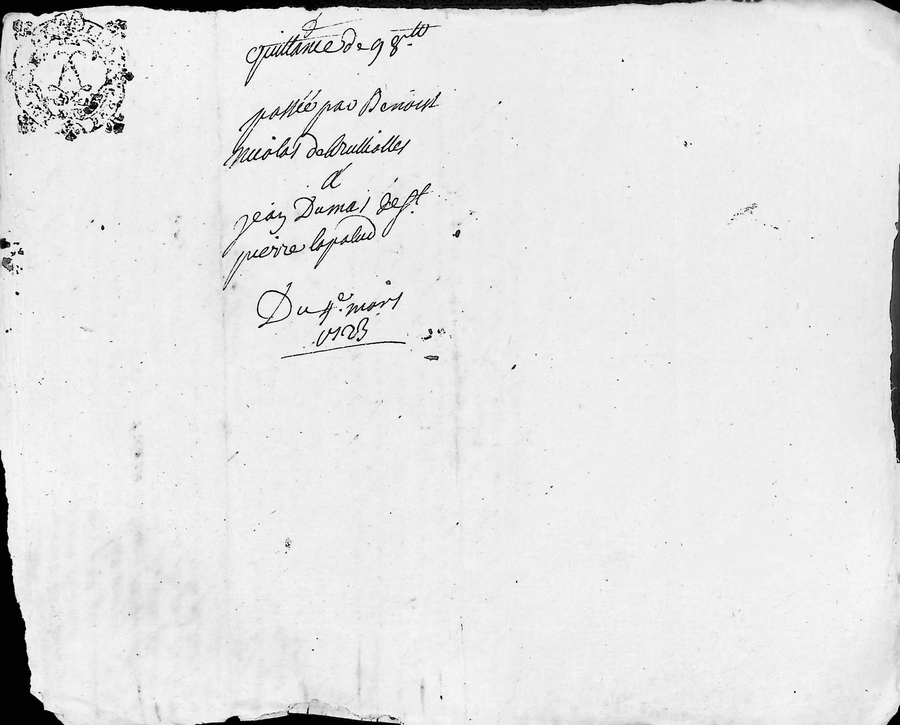 quittance de 98 ₶
passée par Benoist
nicolas de Brullioles
a
jean Dumas de St
pierre lapalud
Du 4e mars
1723